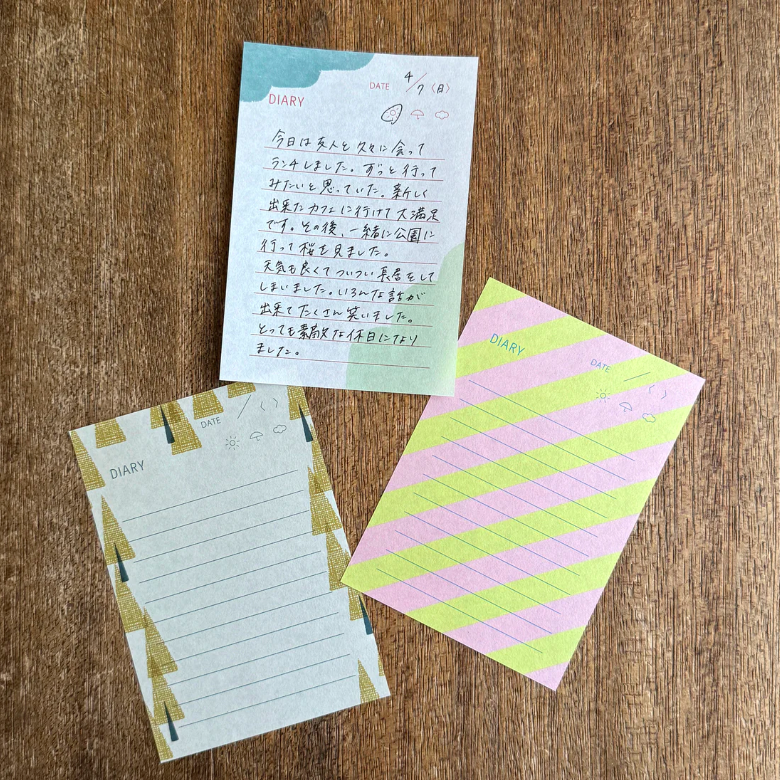 DIARY
DATE 4/7 (日)
今日は友人と久々に会って
ランチしました。ずっと行って
みたいと思っていた。新しく
出来たカフェに行けて大満足
です。その後、一緒に公園に
行って桜を見ました。
天気も良くてついつい長居をして
しまいました。いろんな話が
出来てたくさん笑いました。
とっても素敵な休日になり
ました。
DIARY
DATE / ( )
DIARY
DATE / ( )